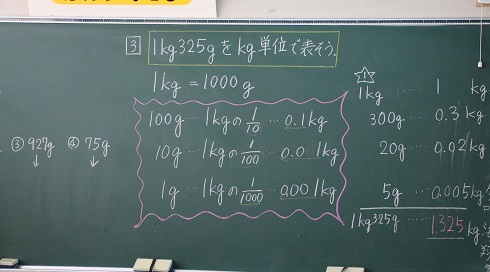 ③ 1kg325gをkg単位で表そう。
1kg = 1000g
100g … 1kgの1/10 … 0.1kg
10g … 1kgの1/100 … 0.01kg
1g … 1kgの1/1000 … 0.001kg
③ 927g ④ 75g
↓ ↓
1
1kg …… 1 kg
300g …… 0.3kg
20g …… 0.02kg
5g …… 0.005kg
1kg325g …… 1.325kg